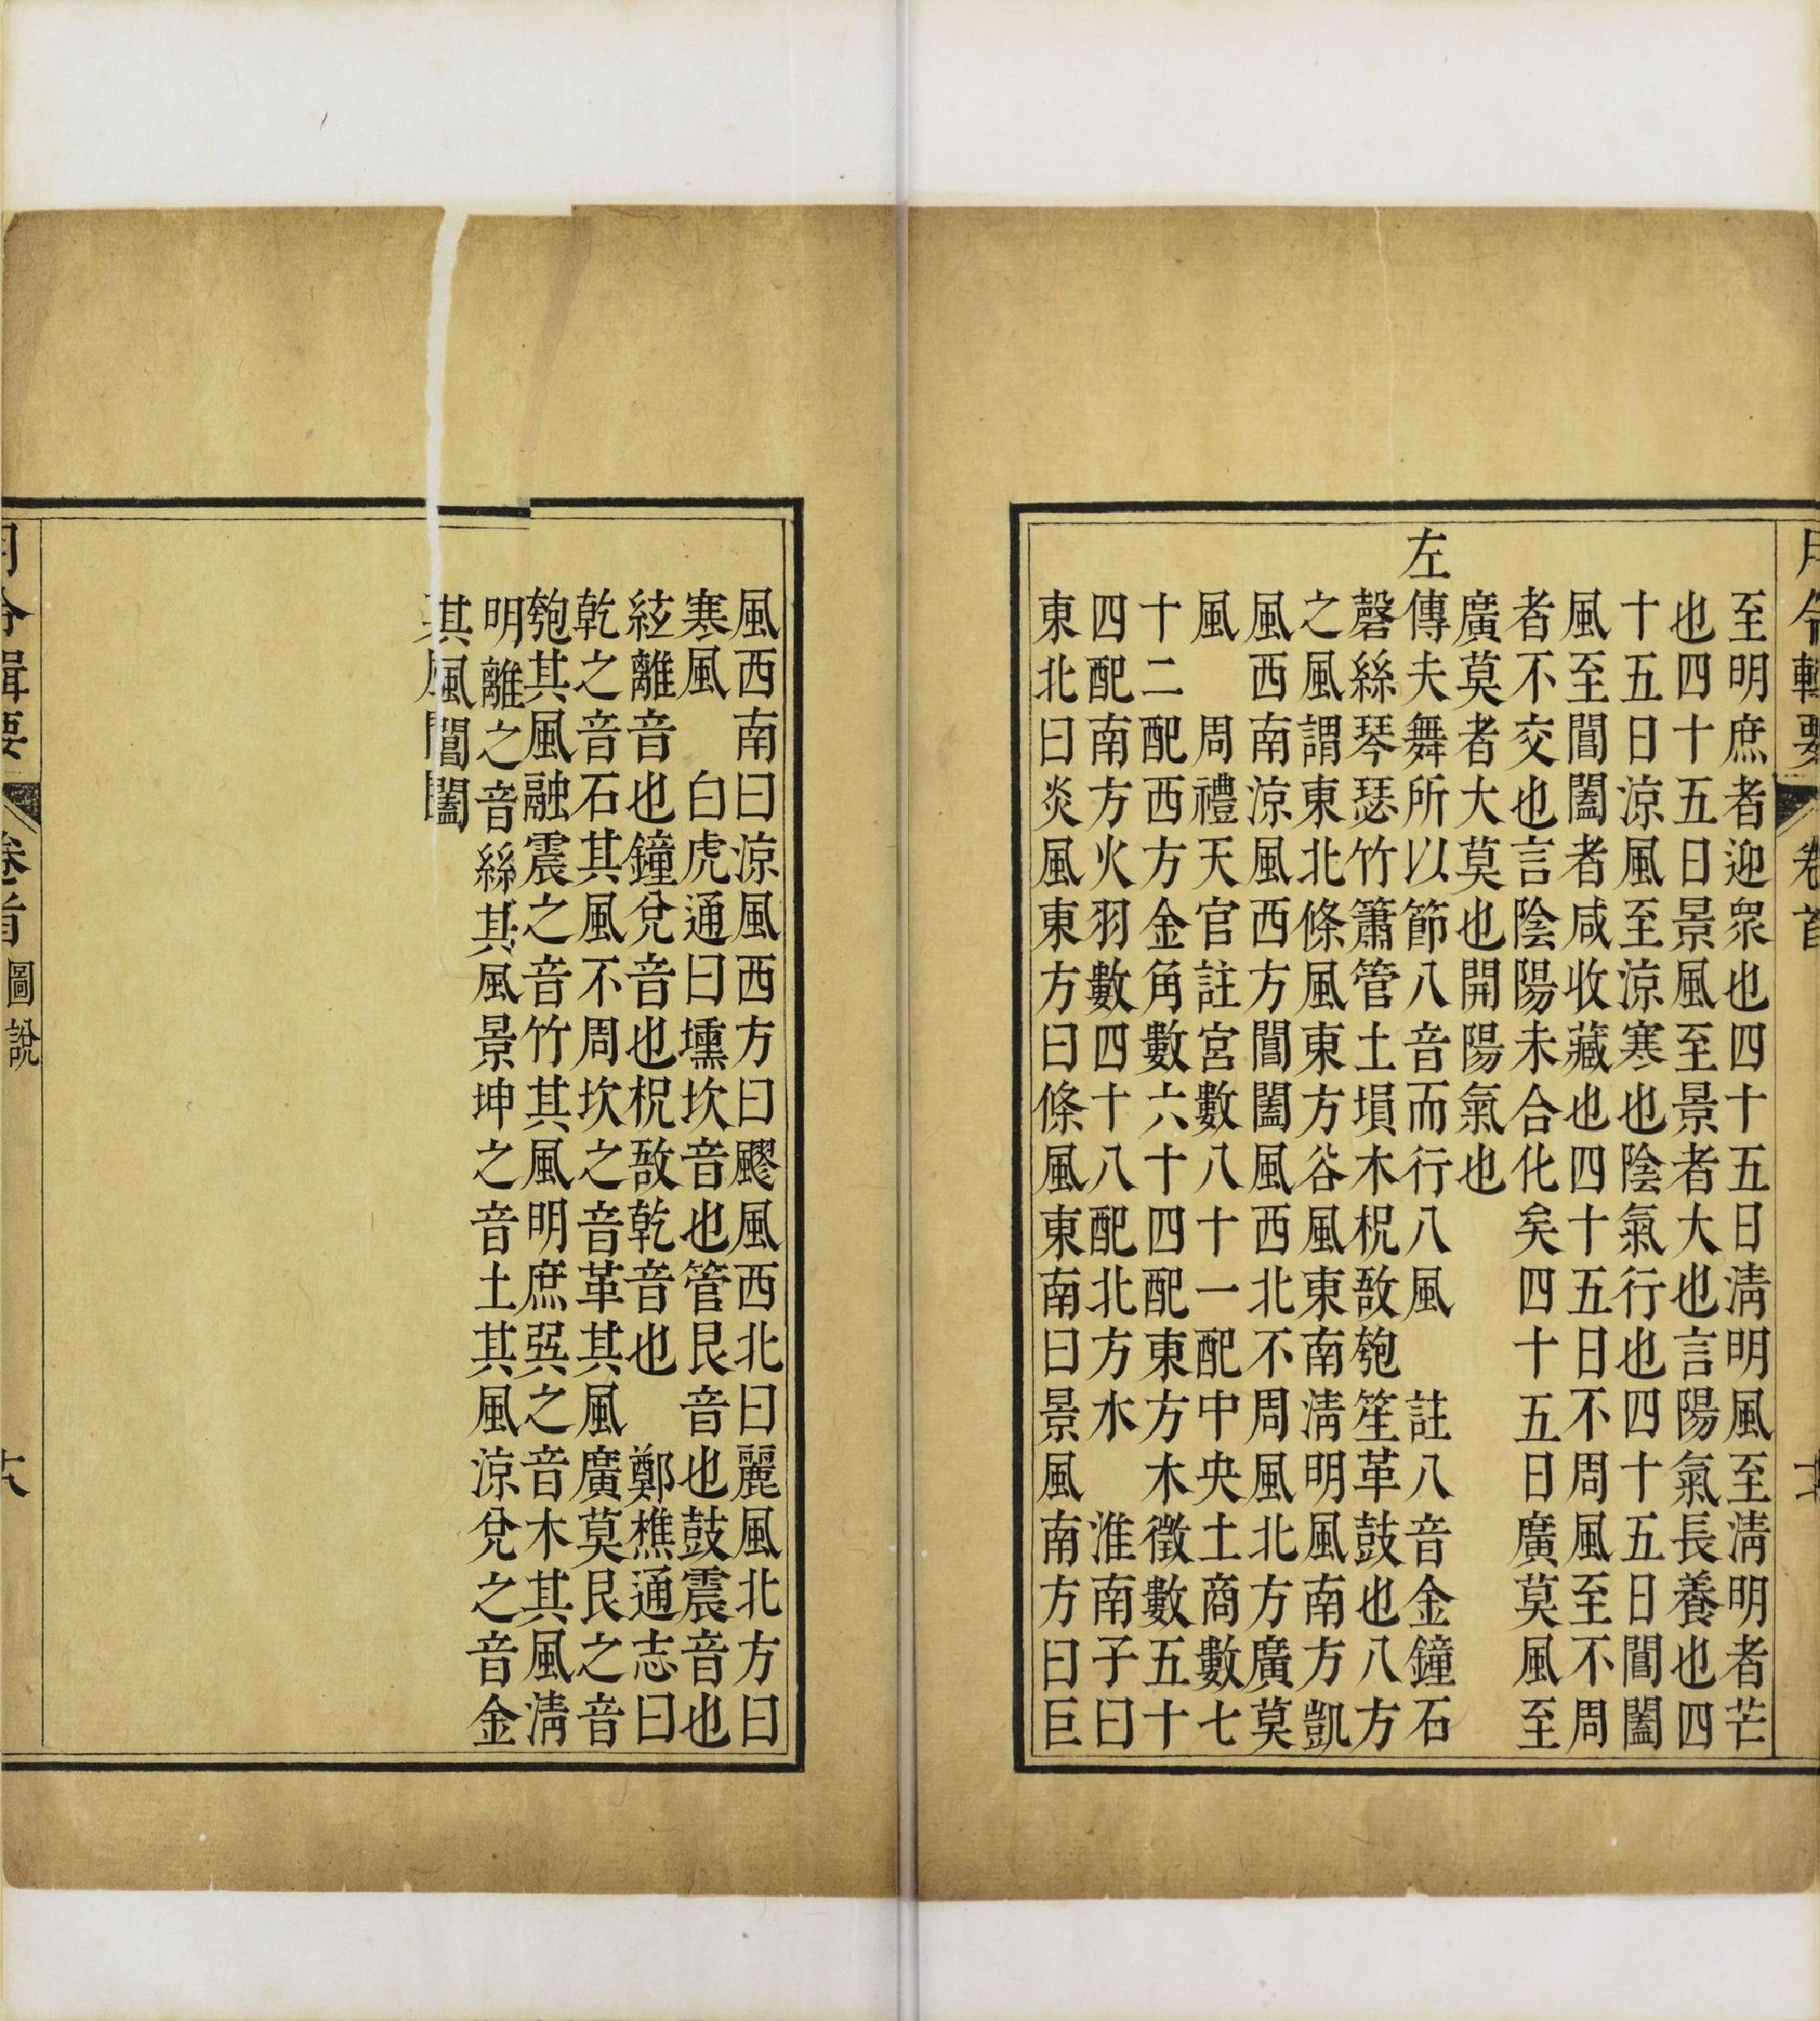 月令輯要 卷首
至明庶者迎眾也四十五日淸明風至淸明者芒
也四十五日景風至景者大也言陽氣長養也四
十五日涼風至涼寒也陰氣行也四十五日閶闔
風至閶闔者咸收藏也四十五日不周風至不周
者不交也言陰陽未合化矣四十五日廣莫風至
廣莫者大莫也開陽氣也
左傳夫舞所以節八音而行八風 註八音金鐘石
磬絲琴瑟竹簫管土塤木柷敔匏笙革鼓也八方
之風謂東北條風東方谷風東南淸明風南方凱
風西南涼風西方閶闔風西北不周風北方廣莫
風 周禮天官註宮數八十一配中央土商數七
十二配西方金角數六十四配東方木徵數五十
四配南方火羽數四十八配北方水 淮南子曰
東北曰炎風東方曰條風東南曰景風南方曰巨
風西南曰涼風西方曰飂風西北曰麗風北方曰
寒風 白虎通曰壎坎音也管艮音也鼓震音也
絃離音也鐘兌音也柷敔乾音也 鄭樵通志曰
乾之音石其風不周坎之音革其風廣莫艮之音
匏其風融震之音竹其風明庶巽之音木其風淸
明離之音絲其風景坤之音土其風涼兌之音金
其風閶闔
月令輯要 卷首 圖說 六